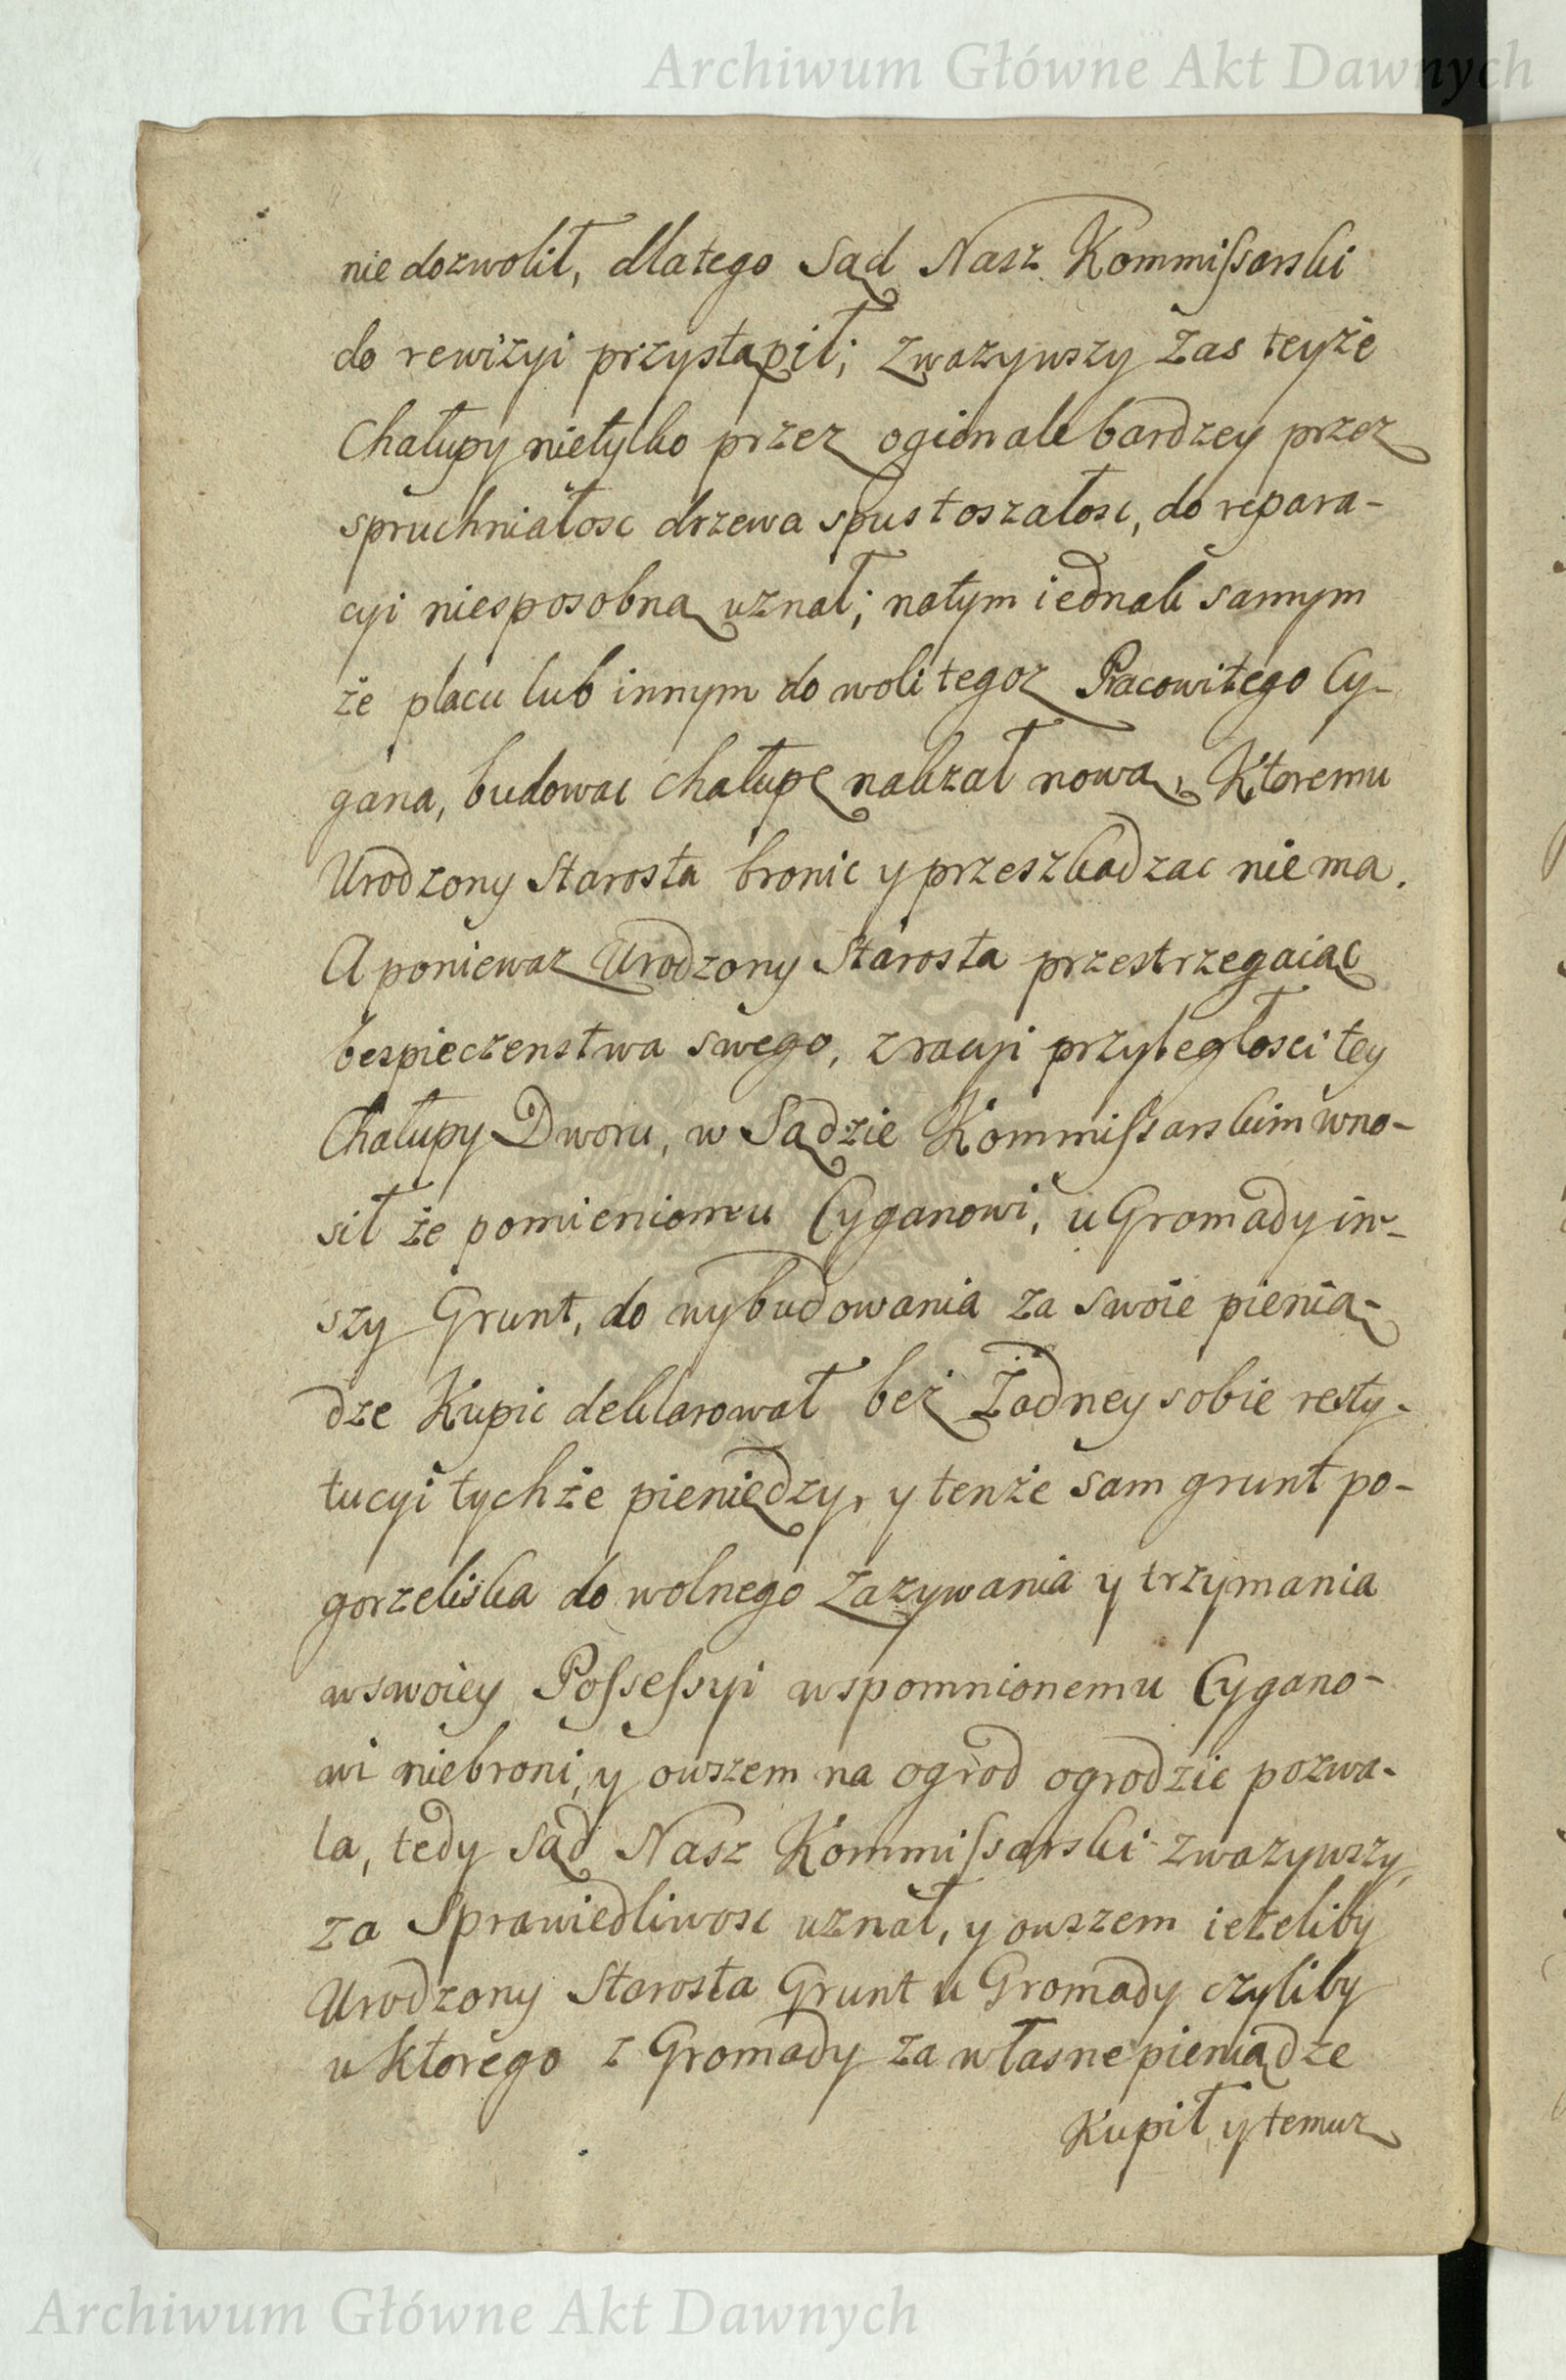 Archiwum Główne Akt Dawnych
nie dozwolił, dlatego Sąd Nasz Kommissarski
do rewizyi przystąpił; zwazywszy zas teyże
Chałupy nietylko przez ogien ale bardzey przez
spruchniałosc drzewa spustoszałosc, do repara-
cyi niesposobną uznał; natym iednak samym
że placu lub innym do woli tegoz Pracowitego Cy-
gana, budowac chałupę nakazał nową, Ktoremu
Urodzony Starosta bronic y przeszkadzac nie ma.
A poniewaz Urodzony Starosta przestrzegaiąc
bespieczenstwa swego, z racyi przyległosci tey
Chałupy Dworu, w Sądzie Kommissarskim wno-
sił że pomienionmu Cyganowi, u Gromady in-
szy Grunt, do wybudowania za swoie pienią-
dze Kupic deklarował bez Żadney sobie resty-
tucyi tychże pieniędzy, y tenże sam grunt po-
gorzeliska do wolnego zazywania y trzymania
w swoiey Possessyi wspomnionemu Cygano-
wi niebroni, y owszem na ogrod ogrodzic pozwa-
la, tedy Sąd Nasz Kommissarski zwazywszy,
za Sprawiedliwosc uznał, y owszem ieżeliby
Urodzony Starosta Grunt u Gromady czyliby
u Ktorego z Gromady za własne pieniądze
Kupił y temuz
Archiwum Główne Akt Dawnych